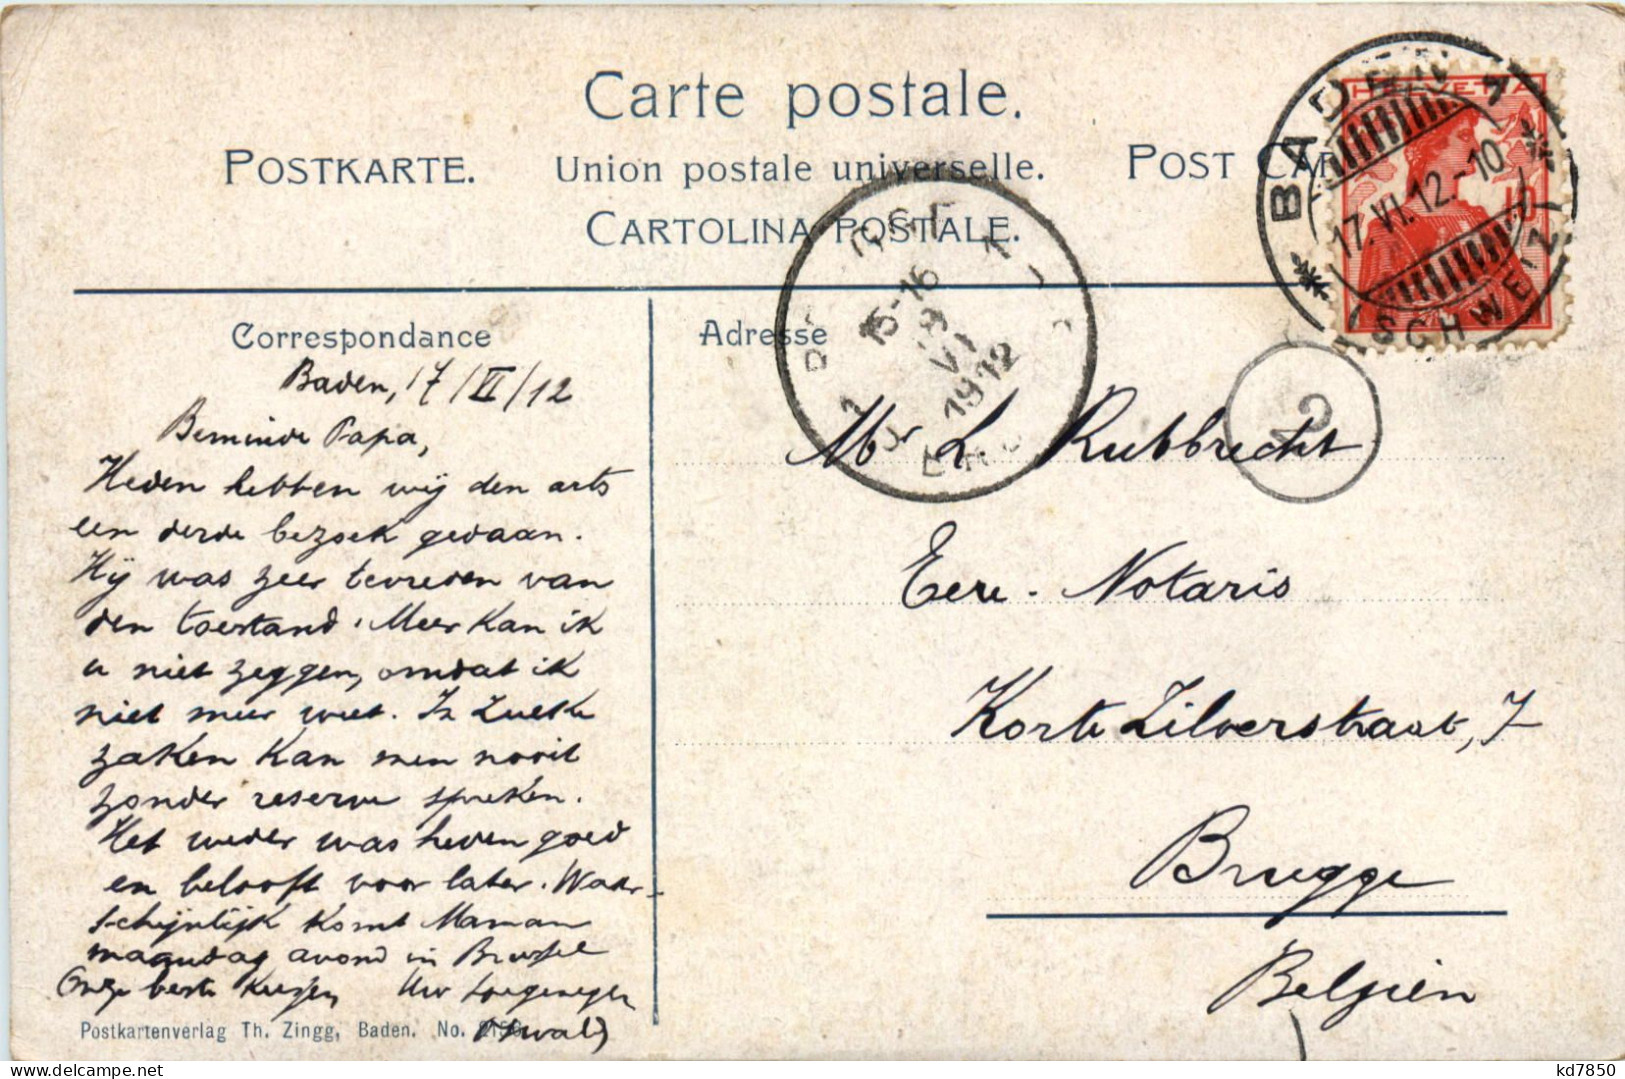 Carte postale.
POSTKARTE.
Union postale universelle.
POST CAR
CARTOLINA POSTALE.
BADEN 1
17.VI.12.-10
SCHWEIZ
HELVETIA
10
1
15-16
VI
1912
2
Correspondance
Baden, 17/VI/12
Beminde Papa,
Heden hebben wij den arts
een derde bezoek gedaan.
Hij was zeer tevreden van
den toestand. Meer kan ik
u niet zeggen, omdat ik
niet meer weet. In Zulke
zaken kan men nooit
zonder reserve spreken.
Het weder was heden goed
en belooft voor later. Waar-
schijnlijk komt Maman
maandag avond in Brussel
Onze beste kussen, Uw toegenegen
Postkartenverlag Th. Zingg, Baden. No.
Adresse
Mr L Rubbrecht
Eere-Notaris
Korte Zilverstraat, 7
Brugge
Belgien
kd7850